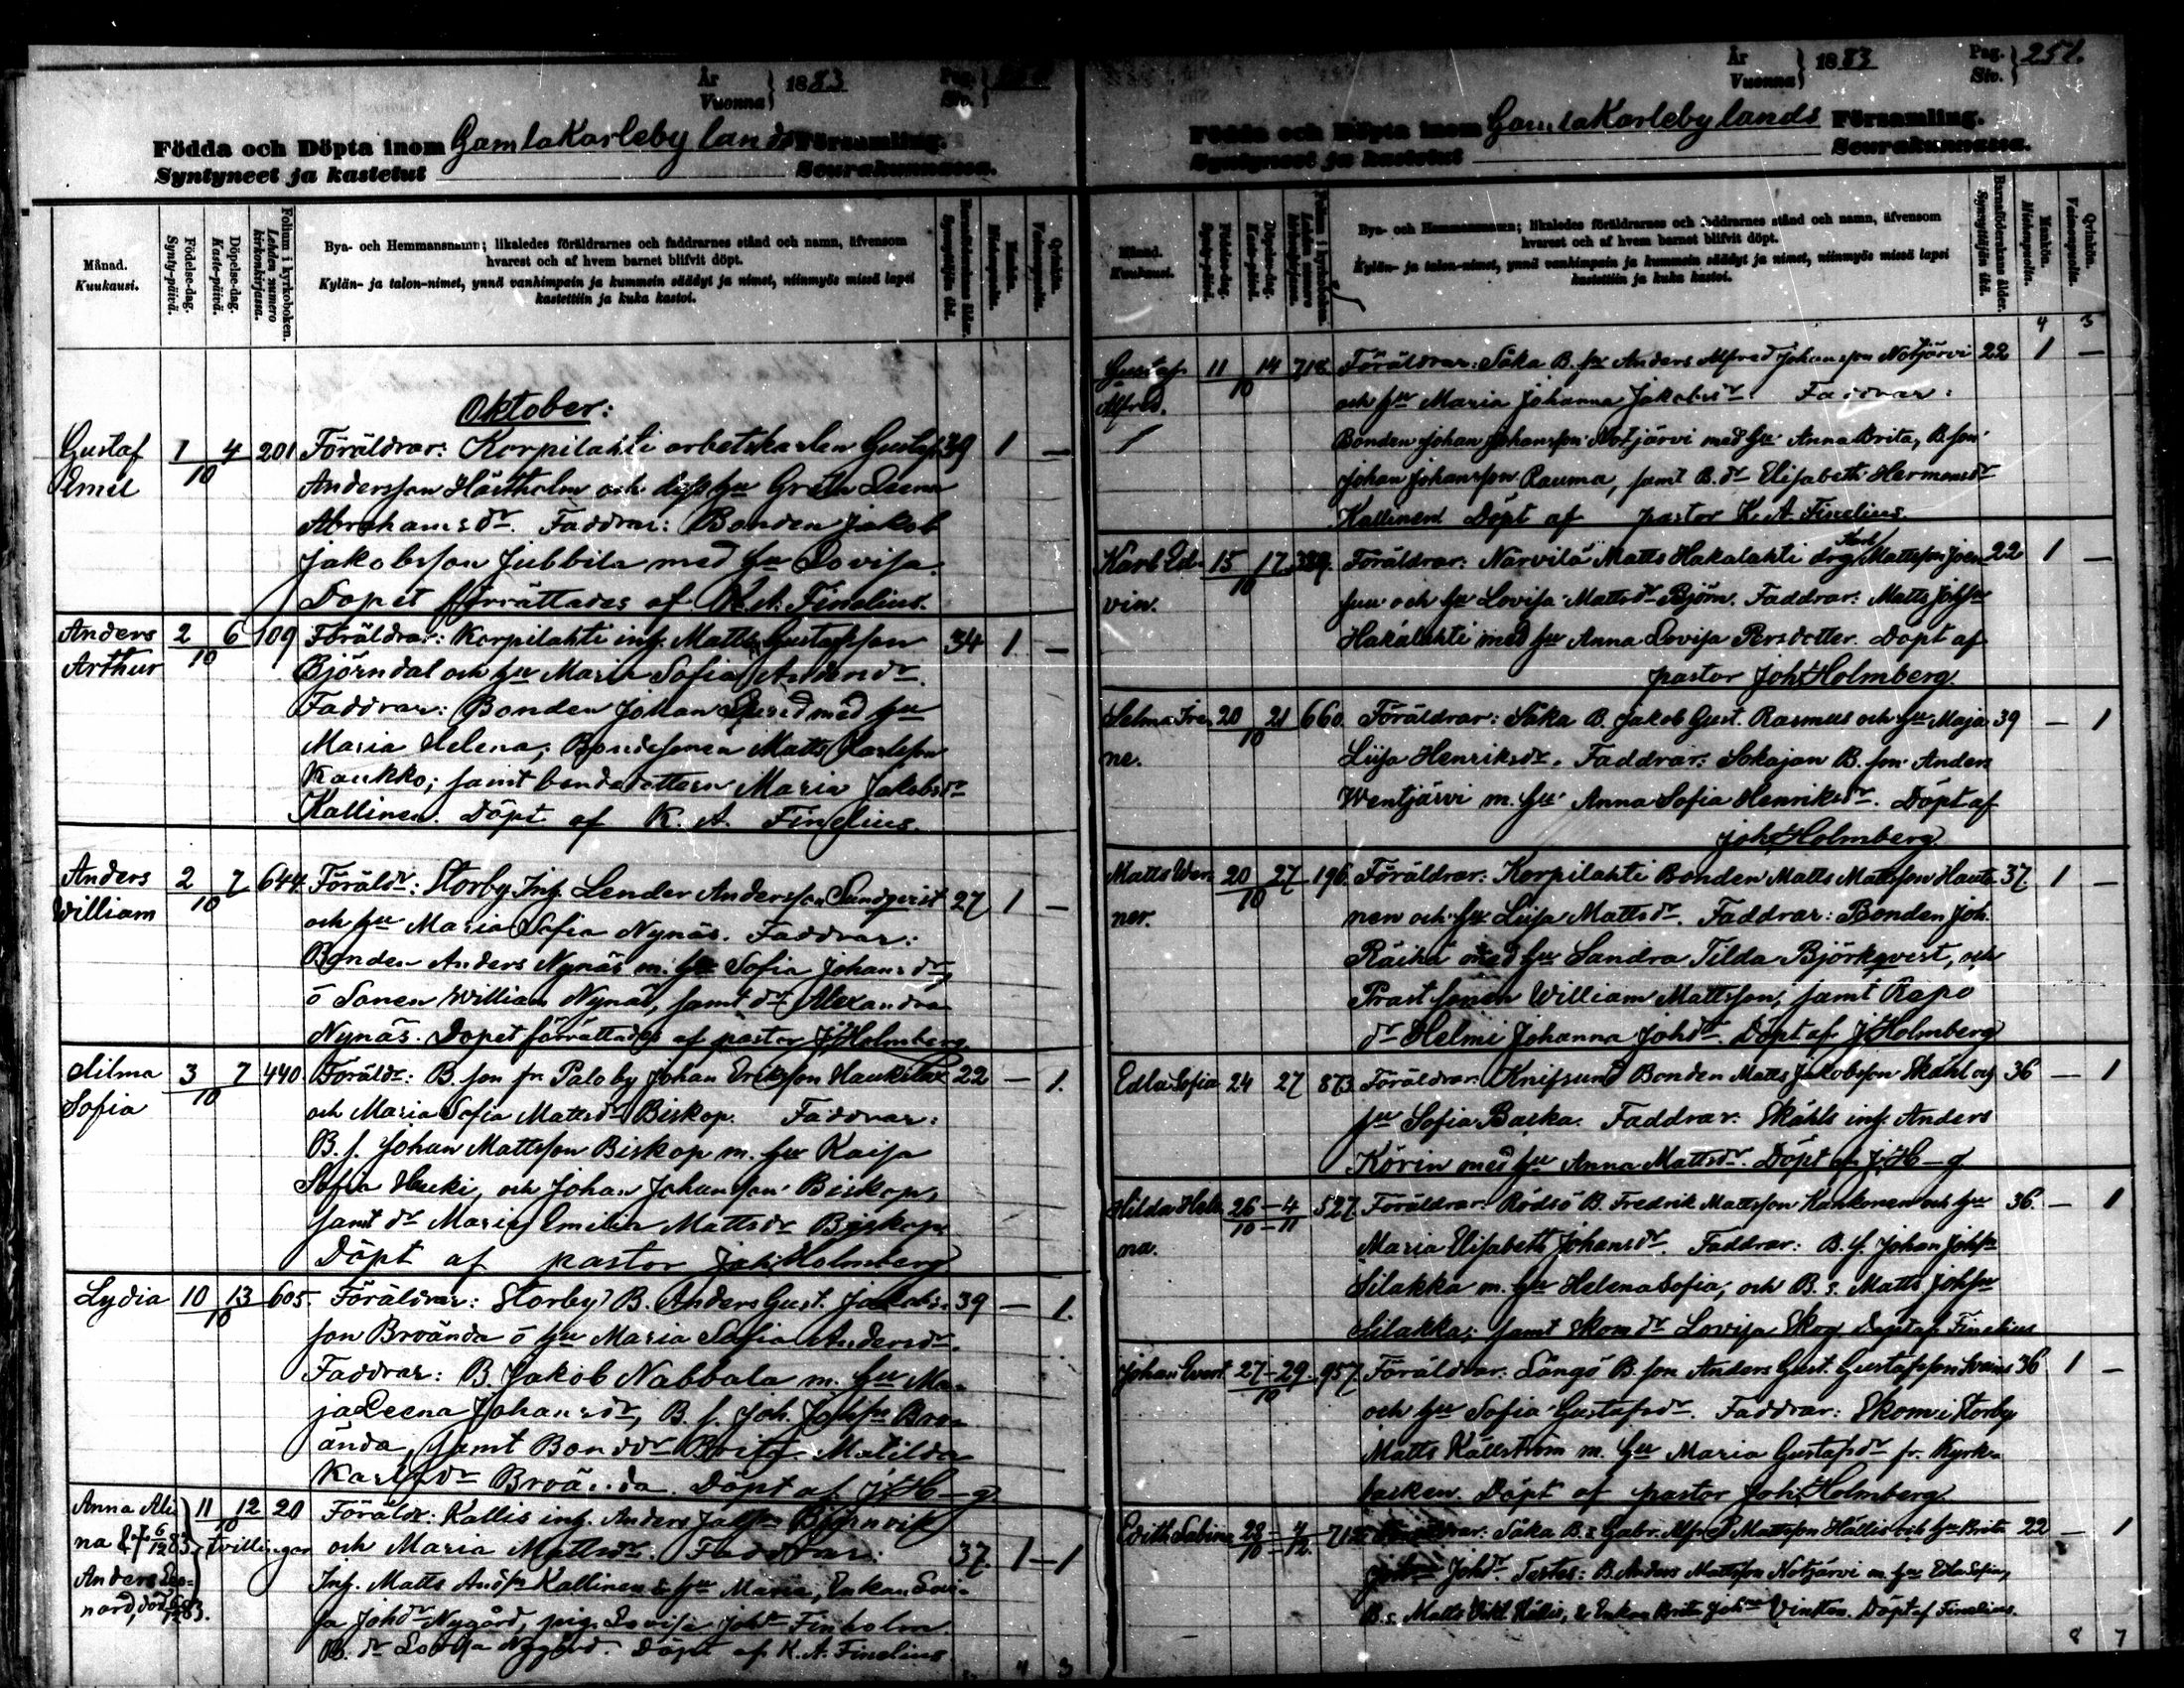 År
Vuonna } 1883
Pag.
Siv. }
Födda och Döpta inom GamlaKarleby lands Församling.
Syntyneet ja kastetut Seurakunnassa.
Månad.
Kuukausi.
Födelse-dag.
Synty-päivä.
Döpelse-dag.
Kaste-päivä.
Folium i kyrkoboken.
Lehden numero kirkonkirjassa.
Bya- och Hemmansnamn; likaledes föräldrarnes och faddrarnes stånd och namn, äfvensom
hvarest och af hvem barnet blifvit döpt.
Kylän- ja talon-nimet, ynnä vanhimpain ja kummein säädyt ja nimet, niinmyös missä lapsi
kastettiin ja kuka kastoi.
Barnaföderskans ålder.
Synnyttäjän ikä.
Mankön.
Miehenpuolta.
Qvinkön.
Vaimonpuolta.
Oktober:
Gustaf 1 4 201 Föräldrar: Korpilahti arbetskarlen Gustaf 39 1 —
Emil 10 Andersson Hästholm och dess hu Greta Leena
Abrahamsdr. Faddrar: Bonden Jakob
Jakobsson Jubbila med hu Lovisa.
Dopet förrättades af K. A. Finelius.
Anders 2 6 109 Föräldrar: Korpilahti inh. Matts Gustafsson 34 1 —
Arthur 10 Björndal och hu Maria Sofia Andersdr.
Faddrar: Bonden Johan med hu
Maria Helena; Bondesonen Matts Karlsson
Kaukko; samt bondedottern Maria Jakobsdr
Kallinen. Döpt af K. A. Finelius.
Anders 2 7 644 Föräldr: Storby Inh. Lender Andersson Sundqvist 27 1 —
William 10 och hu Maria Sofia Nynäs. Faddrar:
Bonden Anders Nynäs m. hu Sofia Johansdr,
o Sonen William Nynäs, samt dr Alexandra
Nynäs. Dopet förrättades af pastor J. Holmberg.
Hilma 3 7 440 Föräldr: B. son fr. Palo by Johan Eriksson 22 — 1.
Sofia 10 och Maria Sofia Mattsdr Biskop. Faddrar:
B. s. Johan Mattsson Biskop m. hu Kaisa
Sofia och Johan Johansson Biskop,
samt dr Maria Emilia Mattsdr Biskop.
Döpt af pastor Joh. Holmberg
Lydia 10 13 605. Föräldrar: Storby B. Anders Gust. Jakobs- 39 — 1.
10 son Broända o hu Maria Sofia Andersdr.
Faddrar: B Jakob Nabbala m. hu Ma-
ja Leena Johansdr, B. s. Joh. Johsn Bro-
ända, samt Bonddr Brita Matilda
Karlsdr Broända. Döpt af J. H—g
Anna Ali- 11 12 20 Föräldr: Kallis inh. Anders Björnvik
na & † 6/12 83. 10 tvillingar och Maria Mattsdr. Faddrar: 37 1 — 1
Anders Leo- Inh. Matts Kallinen & hu Maria, Enkan Lovi-
nard, död 83. sa Johdr Nygård, pig. Lovisa Johdr Finholm
B. dr Lovisa Nygård. Döpt af K. A. Finelius
4 3
År
Vuonna } 1883
Pag.
Siv. } 251.
Födda och Döpta inom GamlaKarleby lands Församling.
Syntyneet ja kastetut Seurakunnassa.
Månad.
Kuukausi.
Födelse-dag.
Synty-päivä.
Döpelse-dag.
Kaste-päivä.
Folium i kyrkoboken.
Lehden numero kirkonkirjassa.
Bya- och Hemmansnamn; likaledes föräldrarnes och faddrarnes stånd och namn, äfvensom
hvarest och af hvem barnet blifvit döpt.
Kylän- ja talon-nimet, ynnä vanhimpain ja kummein säädyt ja nimet, niinmyös missä lapsi
kastettiin ja kuka kastoi.
Barnaföderskans ålder.
Synnyttäjän ikä.
Mankön.
Miehenpuolta.
Qvinkön.
Vaimonpuolta.
4 3
Gustaf 11 14 718 Föräldrar: Såka B. sn Anders Alfred Johansson Notjärvi 22 1 —
Alfred. 10 och hu Maria Johanna Jakobsdr. Faddrar:
Bonden Johan Johansson Notjärvi med hu Anna Brita, B. son
Johan Johansson Rauma, samt B. dr Elisabeth Hermansdr
Kallinen Döpt af pastor K. A. Finelius.
Karl Ed- 15 17 389. Föräldrar: Närvilä Matts Hakalahti drg Karl Mattsson Joen- 22 1 —
vin. 10 suu och hu Lovisa Mattsdr Björn. Faddrar: Matts Johsn
Hakalahti med hu Anna Lovisa Persdotter. Döpt af
pastor Joh. Holmberg.
Selma Ire- 20 21 660. Föräldrar: Såka B. Jakob Gust. Rasmus och hu Maja 39 — 1
ne. 10 Liisa Henriksdr. Faddrar: Sokajan B. son Anders
Wentjärvi m. hu Anna Sofia Henriksdr. Döpt af
Joh. Holmberg
Matts Wer- 20 27 196. Föräldrar: Korpilahti Bonden Matts Mattsson Hauta- 37 1 —
ner. 10 nen och hu Liisa Mattsdr. Faddrar: Bonden Joh.
Räihä med hu Sandra Tilda Björkqvist, och
Prast sonen William Mattsson, samt Rapo
dr Helmi Johanna Johdr. Döpt af J. Holmberg
Edla Sofia 24 27 873 Föräldrar: Knifsund Bonden Matts Jakobsson Skåhl och 36 — 1
hu Sofia Backa. Faddrar: Skåhls inh. Anders
Körin med hu Anna Mattsdr. Döpt af J. H—g
Hilda Hele- 26 — 4 527. Föräldrar: Rödsö B. Fredrik Mattsson Kankonen och hu 36. — 1
na. 10 — 11 Maria Elisabeth Johansdr. Faddrar: B. s. Johan Johsn
Silakka m. hu Helena Sofia, och B. s. Matts Johsn
Silakka; samt Skom dr Lovisa Skog Döpt af Finelius
Johan Evert 27 — 29. 957 Föräldrar: Långö B. son Anders Gust. Gustafsson 36 1 —
10 och hu Sofia Gustafsdr. Faddrar: Skom i Storby
Matts Källström m. hu Maria Gustafsdr fr. Kyrko-
backen. Döpt af pastor Joh. Holmberg.
Edith Sabina 28 — 4 Såka B. s Gabr. Alfred Mattsson Hällis och hu Brita 22 — 1
10 — 12. Johdr. Testes: B. Anders Mattsson Notjärvi m. hu Edla Sofia,
B. s. Matts Vikt. Hällis, & Enkan Brita Vintturi. Döpt af Finelius.
8 7